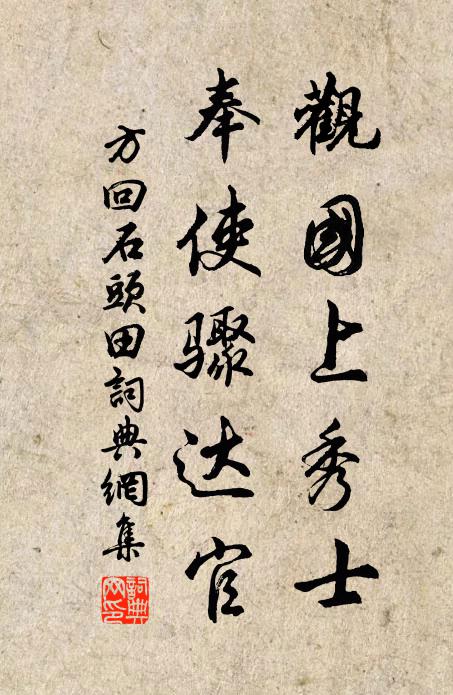 觀國上秀士
奉使驟达官
方回石頭田詞典網集
詞典網印